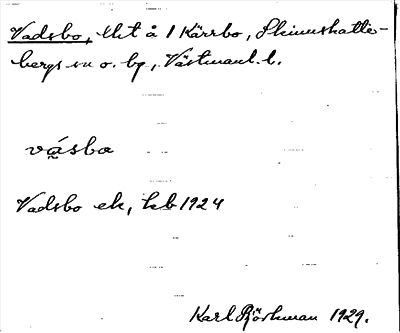 Vadsbo, lht å 1 Kärrbo, Skinnskatte-
bergs sn o. bg., Västmanl. l.
väsba
Vadsbo ek, hb 1924
Karl Björkman 1929.